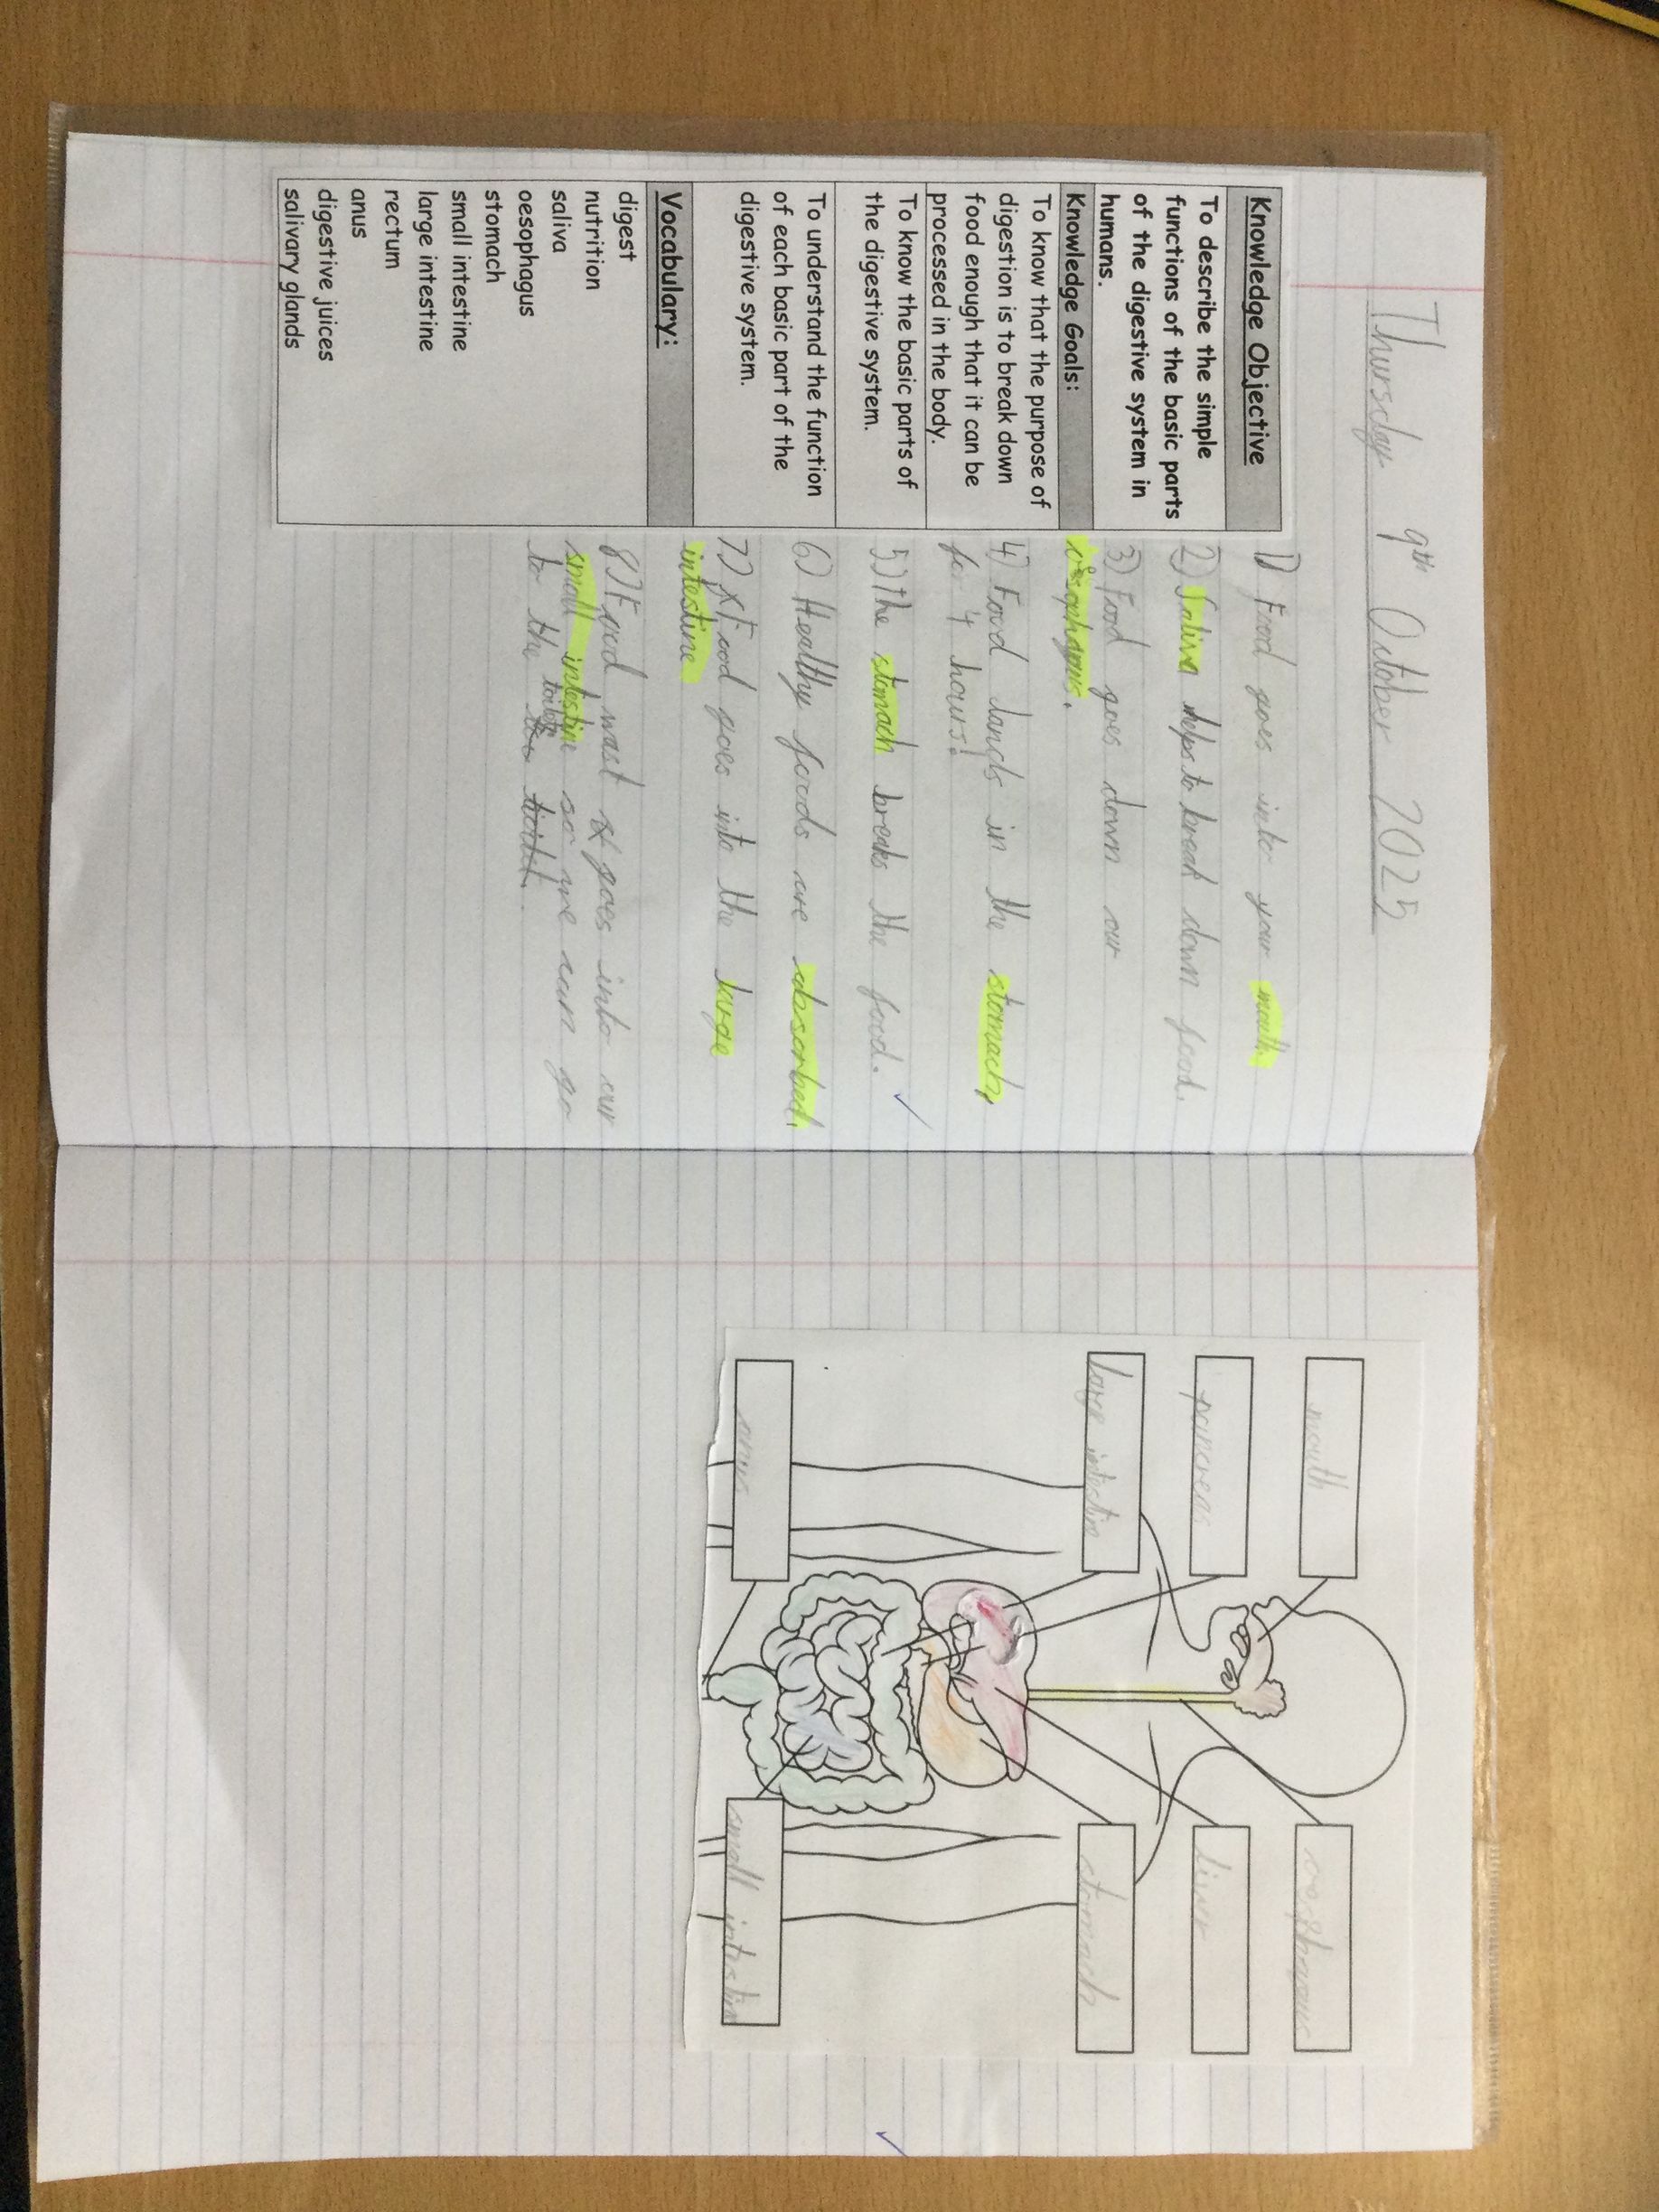 Thursday 9th October 2025
Knowledge Objective
To describe the simple
functions of the basic parts
of the digestive system in
humans.
Knowledge Goals:
To know that the purpose of
digestion is to break down
food enough that it can be
processed in the body.
To know the basic parts of
the digestive system.
To understand the function
of each basic part of the
digestive system.
Vocabulary:
digest
nutrition
saliva
oesophagus
stomach
small intestine
large intestine
rectum
anus
digestive juices
salivary glands
1) Food goes into your mouth.
2) Saliva helps to break down food.
3) Food goes down our
oesophagus.
4) Food lands in the stomach,
for 4 hours!
5) The stomach breaks the food.
6) Healthy foods are absorbed.
7) Food goes into the large
intestine
8) Food wast goes into our
small intestine so we can go
to the toilet.
mouth
pancreas
large intestin
anus
oesophagus
liver
stomach
small intestin